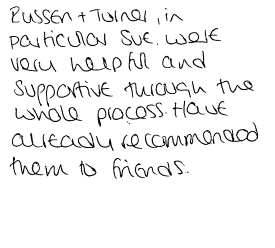 Russen + Turner, in
particular Sue. were
very helpful and
supportive through the
whole process. Have
already recommended
them to friends.